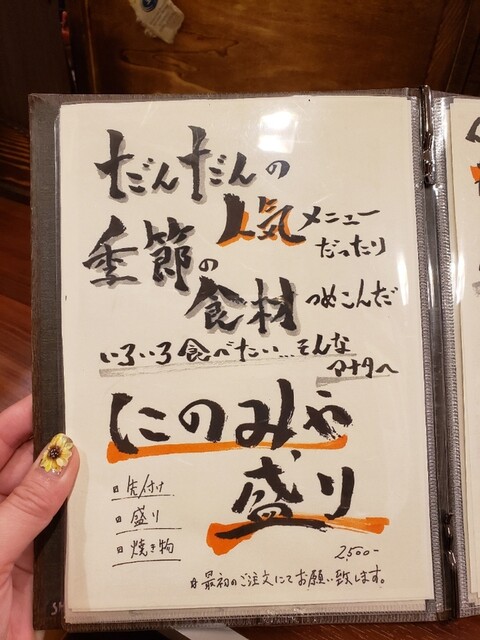 だんだんの
人気メニュー
だったり
季節の
食材つめこんだ
いろいろ食べたい…そんな
アナタへ
にのみや
盛り
先付け
盛り
焼き物
2,500-
☆最初のご注文にてお願い致します。